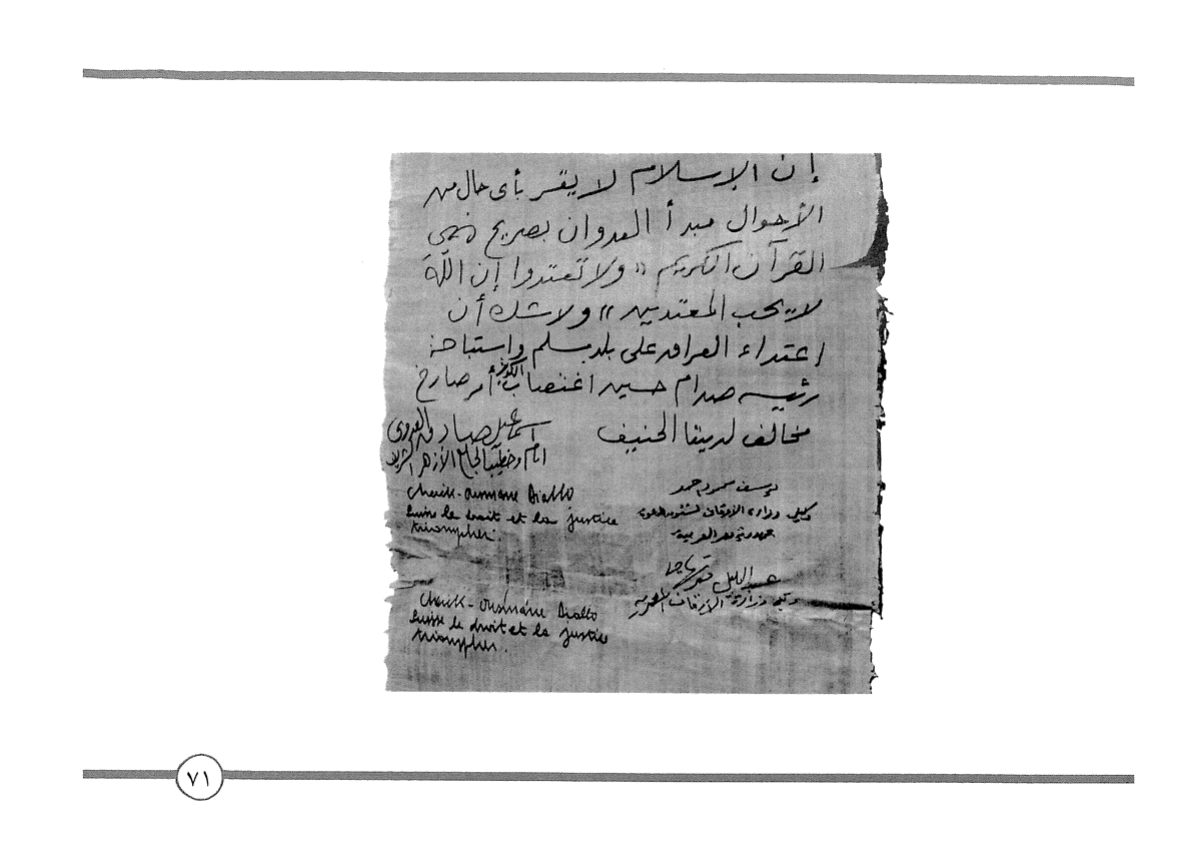 إن الإسلام لا يقر بأى حال من
الأحوال مبدأ العدوان بصريح نص
القرآن الكريم « ولا تعتدوا إن الله
لا يحب المعتدين » ولا شك أن
اعتداء العراق على بلد مسلم واستباحة
رئيسه صدام حسين اغتصاب الكويت أمر صارخ
مخالف لديننا الحنيف
اسماعيل صادق العدوى
امام وخطيب الجامع الأزهر الشريف
يوسف محمود احمد
وكيل وزارة الأوقاف لشئون الدعوة
جمهورية مصر العربية
Cheik-Ousmane Diallo
Puisse le droit et la justice
triompher.
عبد الجليل
وكيل وزارة الأوقاف المصرية
Cheik-Ousmane Diallo
Puisse le droit et la justice
triompher.
٧١